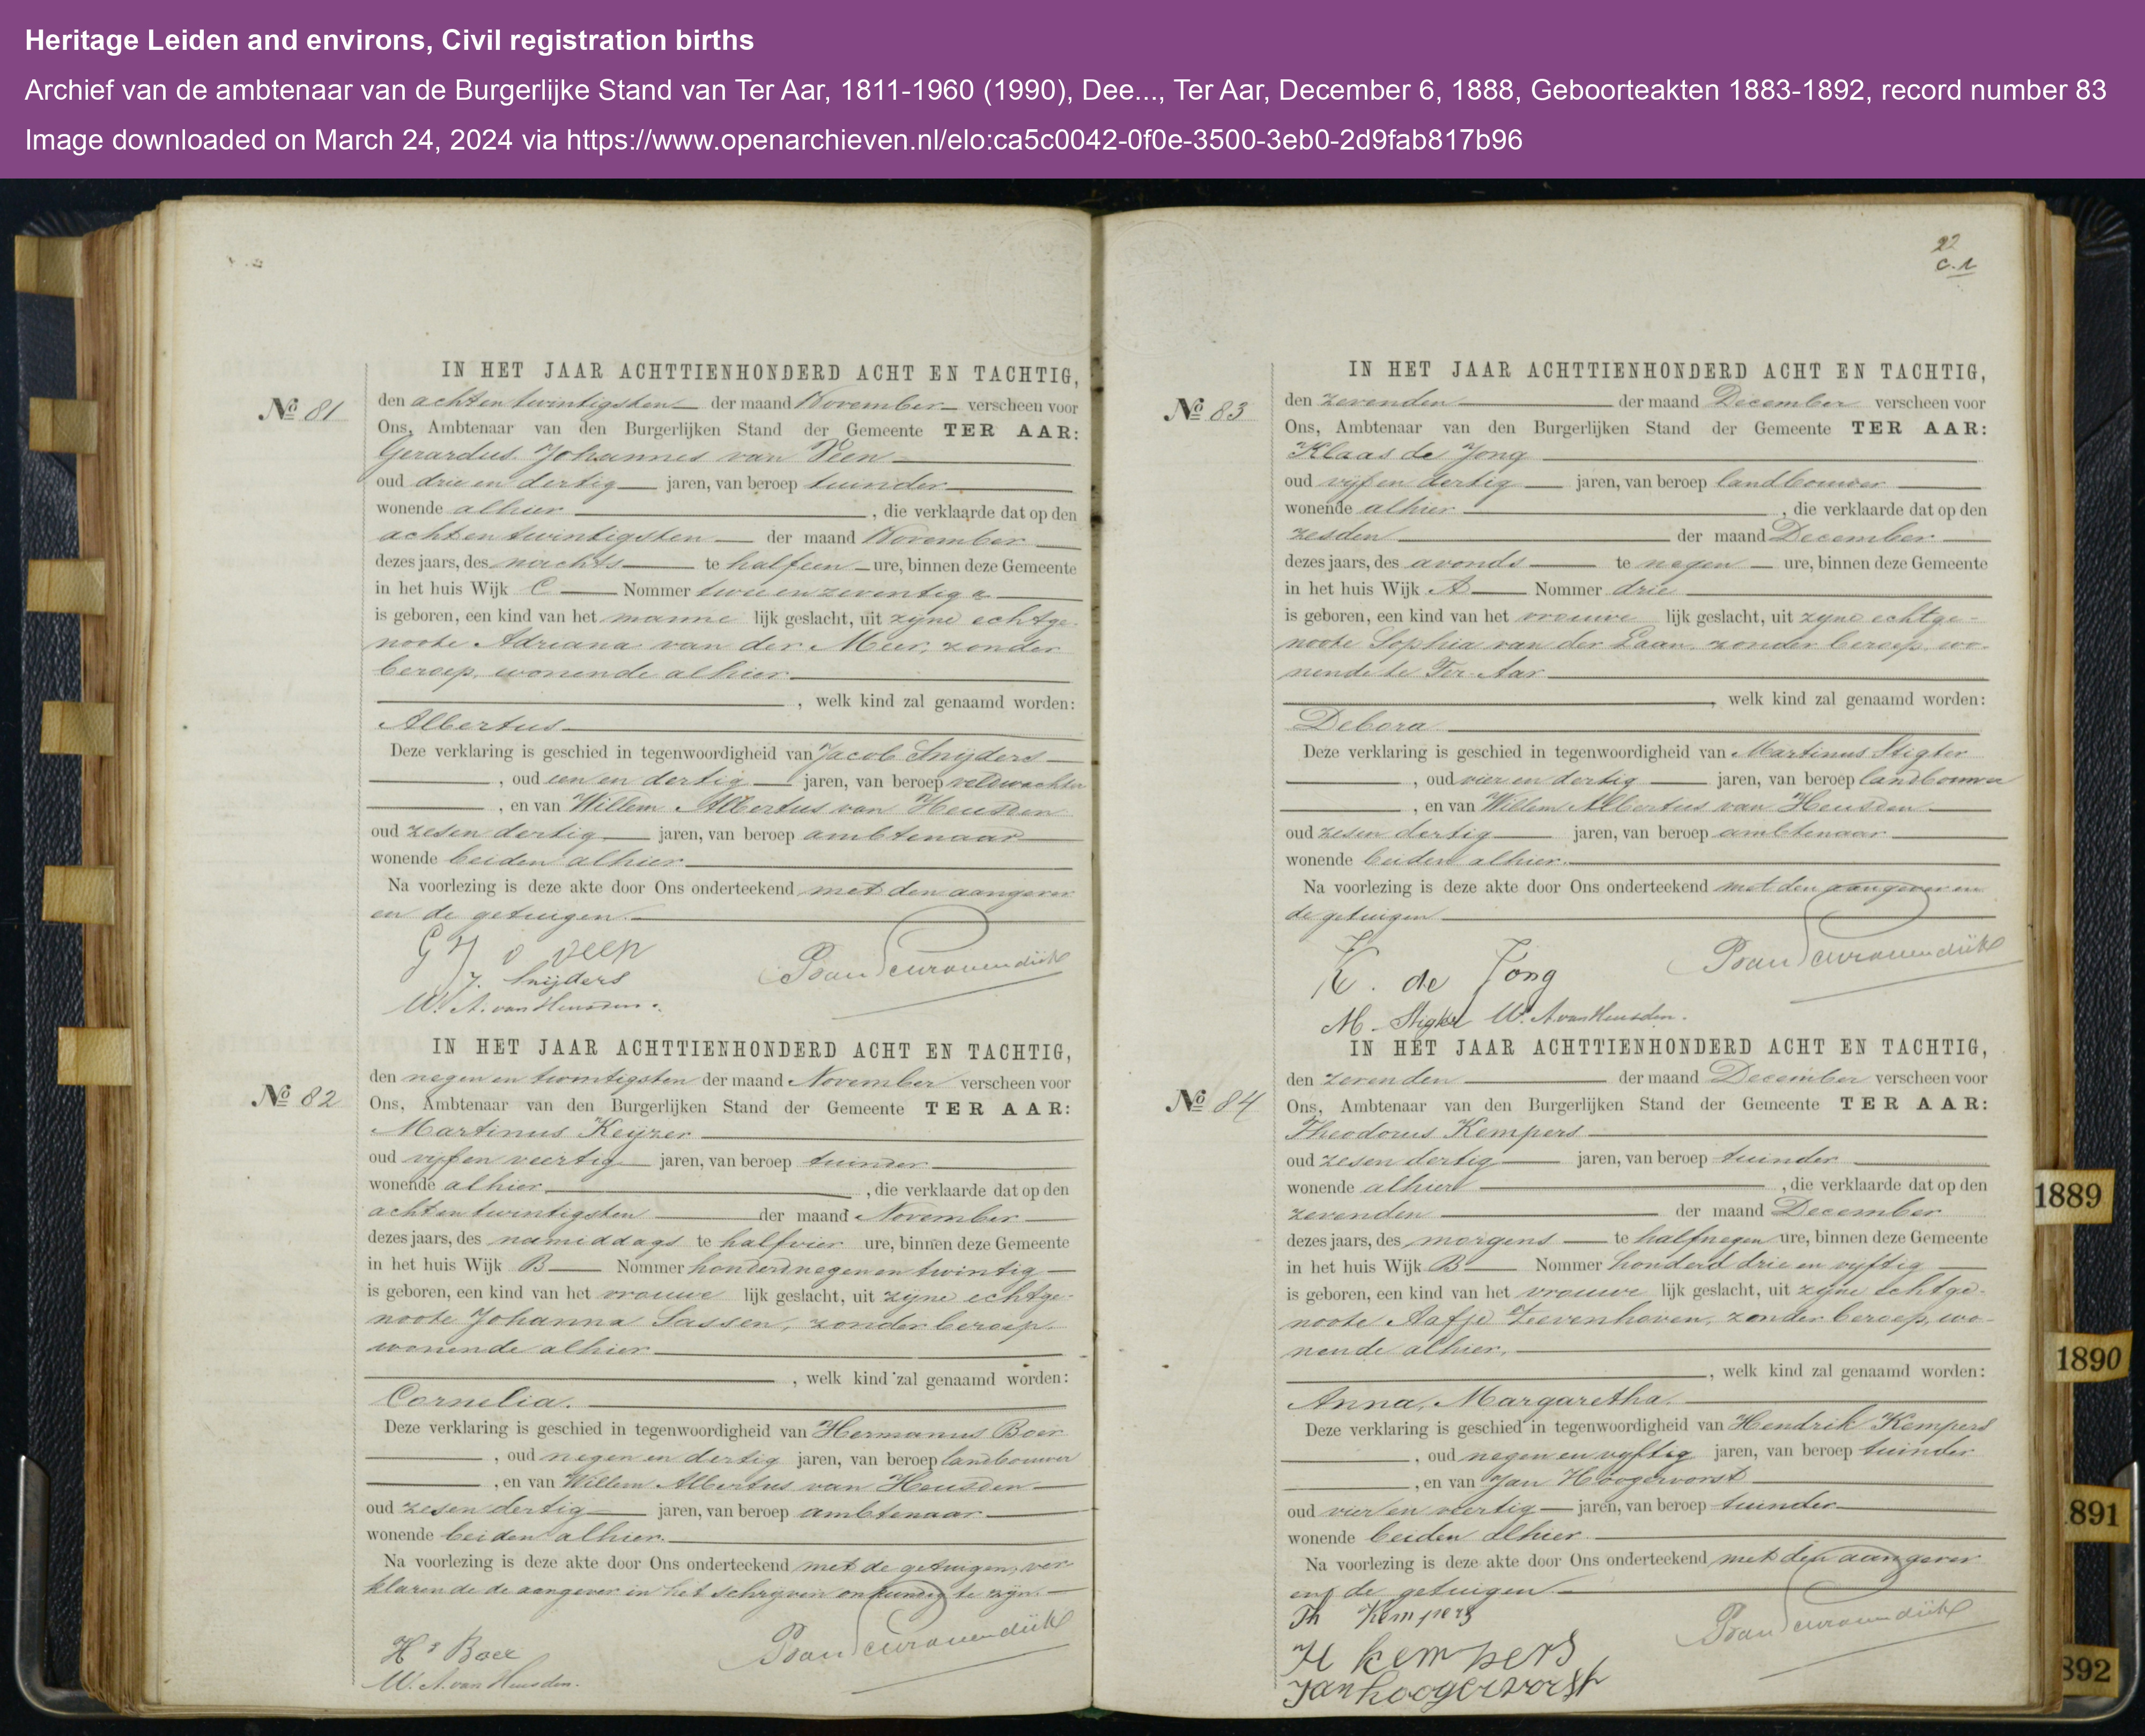 Heritage Leiden and environs, Civil registration births
Archief van de ambtenaar van de Burgerlijke Stand van Ter Aar, 1811-1960 (1990), Dee..., Ter Aar, December 6, 1888, Geboorteakten 1883-1892, record number 83
Image downloaded on March 24, 2024 via https://www.openarchieven.nl/elo:ca5c0042-0f0e-3500-3eb0-2d9fab817b96
IN HET JAAR ACHTTIENHONDERD ACHT EN TACHTIG,
No 81
den achtentwintigsten der maand November verscheen voor
Ons, Ambtenaar van den Burgerlijken Stand der Gemeente TER AAR:
Gerardus Johannes van Veen
oud drie en dertig jaren, van beroep tuinder
wonende alhier , die verklaarde dat op den
achtentwintigsten der maand November
dezes jaars, des nachts te half een ure, binnen deze Gemeente
in het huis Wijk C Nommer twee en zeventig a
is geboren, een kind van het manne lijk geslacht, uit zijne echtge-
noote Adriana van der Meer, zonder
beroep, wonende alhier
, welk kind zal genaamd worden:
Albertus
Deze verklaring is geschied in tegenwoordigheid van Jacob Snijders
, oud een en dertig jaren, van beroep veldwachter
, en van Willem Albertus van Heusden
oud zesen dertig jaren, van beroep ambtenaar
wonende beiden alhier
Na voorlezing is deze akte door Ons onderteekend met den aangever
en de getuigen.
G J v veen
J. Snijders
W. A. van Heusden.
IN HET JAAR ACHTTIENHONDERD ACHT EN TACHTIG,
No 82
den negen en twintigsten der maand November verscheen voor
Ons, Ambtenaar van den Burgerlijken Stand der Gemeente TER AAR:
Martinus Keyzer
oud vijf en veertig jaren, van beroep tuinder
wonende alhier , die verklaarde dat op den
achtentwintigsten der maand November
dezes jaars, des namiddags te half vier ure, binnen deze Gemeente
in het huis Wijk B Nommer honderdnegenen twintig
is geboren, een kind van het vrouwe lijk geslacht, uit zijne echtge-
noote Johanna Sassen, zonder beroep.
wonende alhier
, welk kind zal genaamd worden:
Cornelia.
Deze verklaring is geschied in tegenwoordigheid van Hermanus Boer
, oud negen en dertig jaren, van beroep landbouwer
, en van Willem Albertus van Heusden
oud zesen dertig jaren, van beroep ambtenaar
wonende beiden alhier.
Na voorlezing is deze akte door Ons onderteekend met de getuigen, ver-
klarende de aangever in het schrijven onkundig te zijn.
Hs Boer
W. A. van Heusden.
22
c. 1
IN HET JAAR ACHTTIENHONDERD ACHT EN TACHTIG,
No 83
den zevenden der maand December verscheen voor
Ons, Ambtenaar van den Burgerlijken Stand der Gemeente TER AAR:
Klaas de Jong
oud vijf en dertig jaren, van beroep landbouwer
wonende alhier , die verklaarde dat op den
zesden der maand December
dezes jaars, des avonds te negen ure, binnen deze Gemeente
in het huis Wijk A Nommer drie
is geboren, een kind van het vrouwe lijk geslacht, uit zijne echtge-
noote Sophia van der Laan, zonder beroep, wo-
nende te Ter-Aar
, welk kind zal genaamd worden:
Debora
Deze verklaring is geschied in tegenwoordigheid van Martinus Stigter
, oud vier en dertig jaren, van beroep landbouwer
, en van Willem Albertus van Heusden
oud zesen dertig jaren, van beroep ambtenaar
wonende beiden alhier.
Na voorlezing is deze akte door Ons onderteekend met den aangever en
de getuigen
K. de Jong
M. Stigter W. A. van Heusden.
IN HET JAAR ACHTTIENHONDERD ACHT EN TACHTIG,
No 84
den zevenden der maand December verscheen voor
Ons, Ambtenaar van den Burgerlijken Stand der Gemeente TER AAR:
Theodorus Kempers
oud zesen dertig jaren, van beroep tuinder
wonende alhier , die verklaarde dat op den
zevenden der maand December
dezes jaars, des morgens te half negen ure, binnen deze Gemeente
in het huis Wijk B Nommer honderd drie en vijftig
is geboren, een kind van het vrouwe lijk geslacht, uit zijne echtge-
noote Aafje Zeevenhoven, zonder beroep, wo-
nende alhier,
, welk kind zal genaamd worden:
Anna, Margaretha.
Deze verklaring is geschied in tegenwoordigheid van Hendrik Kempers
, oud negen en vijftig jaren, van beroep tuinder
, en van Jan Hoogervorst
oud vier en veertig jaren, van beroep tuinder
wonende beiden alhier.
Na voorlezing is deze akte door Ons onderteekend met den aangever
en de getuigen
Th Kempers
H kempers
Jan hoogervorst
1889
1890
1891
892